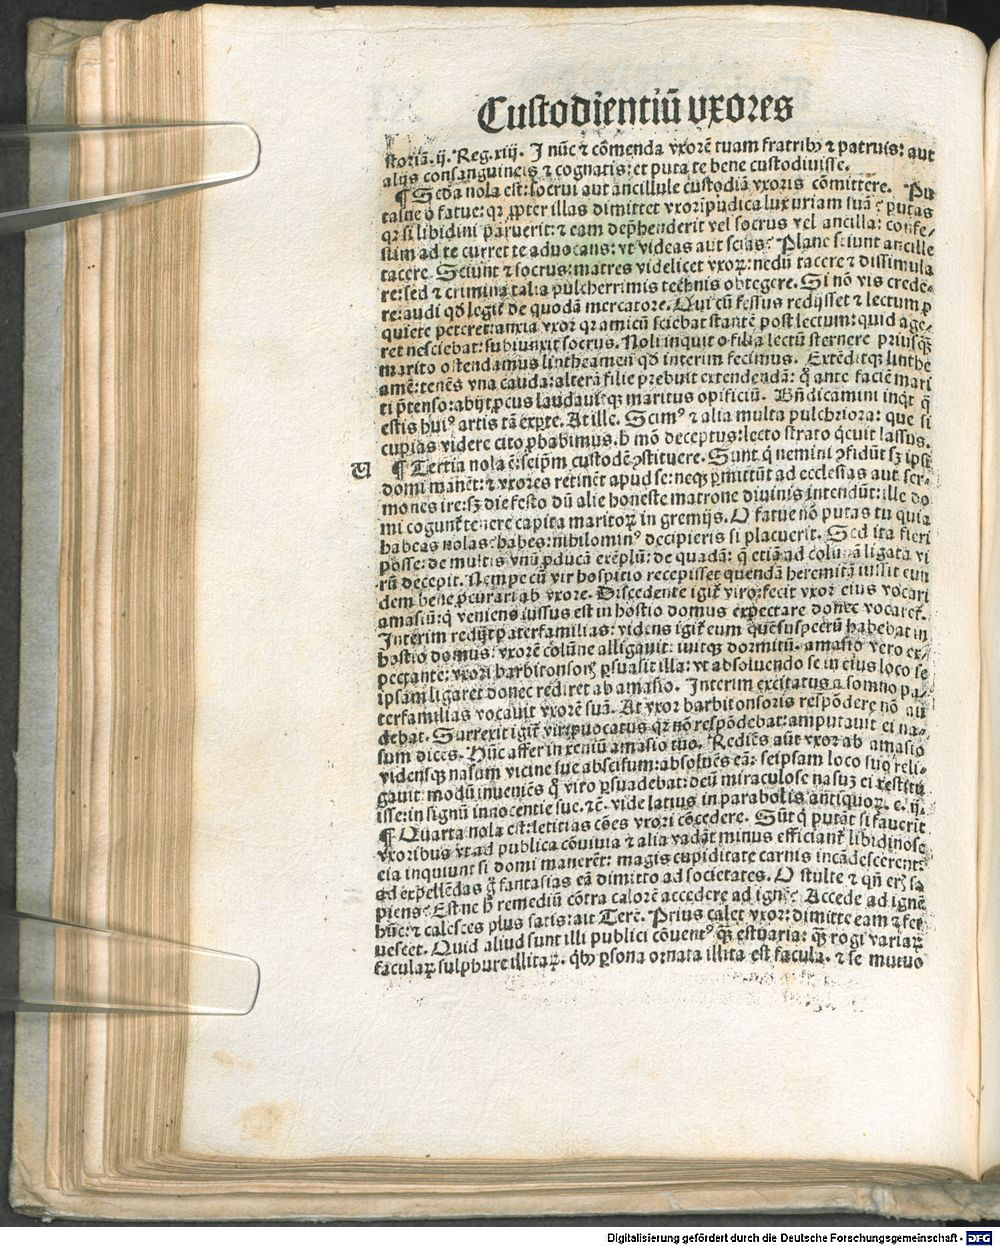 Custodientiū vxores
storiā.ij.Reg.xiij. I nūc ⁊ cōmenda vxorē tuam fratribꝰ ⁊ patruis: aut
alijs consanguineis ⁊ cognatis: et puta te bene custodiuisse.
¶ Scḋa nola est: socrui aut ancillule custodiā vxoris cōmittere. Pu
tasne o fatue: qꝛ ꝓpter illas dimittet vxor īpudica luxuriam suā? putas
qꝛ si libidini paruerit: ⁊ eam dep̄henderit vel socrus vel ancilla: confe⸗
stim ad te curret te aduocans: vt videas aut scias? Plane sciunt ancille
tacere. Sciunt ⁊ socrus: matres videlicet vxorꝝ: nedū tacere ⁊ dissimula
re: sed ⁊ crimina talia pulcherrimis technis obtegere. Si nō vis crede⸗
re: audi qḋ legit᷑ de quodā mercatore. Qui cū fessus redijsset ⁊ lectum ꝓ
quiete peteret: anxia vxor qꝛ amicū sciebat stantē post lectum: quid age⸗
ret nesciebat: subiunxit socrus. Noli inquit o filia lectū sternere priusqꝫ̄
marito ostendamus lintheamen qḋ interim fecimus. Extēditqꝫ linthe
amē: tenēs vna cauda: alterā filie prebuit extendendā: q̊ ante faciē mari
ti p̄tenso: abijt ꝓcus laudauitqꝫ maritus opificiū. Bn̄dicamini inqt q̄
estis huiꝰ artis tā exꝑte. At ille. Scimꝰ ⁊ alia multa pulchriora: que si
cupias videre cito ꝓbabimus. h̄ mō deceptus: lecto strato q̇cuit lassus.
U ¶ Tertia nola ē: seip̄m custodē ꝯstituere. Sunt q̇ nemini ꝯfidūt sꝫ ip̄si
domi manēt: ⁊ vxores retinēt apud se: neqꝫ ꝑmittūt ad ecclesias aut ser⸗
mones ire: sꝫ die festo dū alie honeste matrone diuinis intendūt: ille do
mi cogunt᷑ tenere capita maritoꝝ in gremijs. O fatue nō putas tu quia
habeas nolas? habes: nihilominꝰ decipieris si placuerit. Sed ita fieri
posse: de multis vnū ꝓducā exēplū: de quadā: q̄ etiā ad colūnā ligata vi
rū decepit. Nempe cū vir hospitio recepisset quendā heremitā iussit eun
dem bene ꝓcurari ab vxore. Discedente igit᷑ viro: fecit vxor eius vocari
amasiū: q̇ veniens iussus est in hostio domus expectare donec vocaret᷑.
Interim redijt paterfamilias: videns igit᷑ eum quē suspectū habebat in
hostio domus: vxorē colūne alligauit: iuitqꝫ dormitū. amasio vero ex⸗
pectante: vxori barbitonsoris ꝑsuasit illa: vt absoluendo se in eius loco se
ipsam ligaret donec rediret ab amasio. Interim excitatus a somno pa⸗
terfamilias vocauit vxorē suā. At vxor barbitonsoris respōdere nō au
debat. Surrexit igit᷑ vir: ꝓuocatus qꝛ nō respōdebat: amputauit ei na⸗
sum dicēs. Hūc affer in xeniū amasio tuo. Rediēs aūt vxor ab amasio
vidensqꝫ nasum vicine sue abscisum: absoluēs eā: seipsam loco suo reli⸗
gauit. modū inueniēs q̊ viro ꝑsuadebat: deū miraculose nasuꝫ ei restitu
isse: in signū innocentie sue. ⁊c̄. vide latius in parabolis antiquoꝝ. c. ij.
¶ Quarta nola est: letitias cōes vxori cōcedere. Sūt q̇ putāt si fauerit
vxoribus vt ad publica cōuiuia ⁊ alia vadāt minus efficiant᷑ libidinose
eia inquiunt si domi manerēt: magis cupiditate carnis incādescerent:
ad expellēdas g̊ fantasias eā dimitto ad societates. O stulte ⁊ qn̄ eris sa
piens? Estne h̄ remediū cōtra calorē accedere ad ignē? Accede ad ignē
hūc: ⁊ calesces plus satis: ait Terē. Prius calet vxor: dimitte eam ⁊ fer
uescet. Quid aliud sunt illi publici cōuentꝰ qꝫ̄ estuaria: qꝫ̄ rogi variaꝝ
faculaꝝ sulphure illitaꝝ. qḃꝫ ꝑsona ornata illita est facula. ⁊ se mutuo
Digitalisierung gefördert durch die Deutsche Forschungsgemeinschaft - DFG